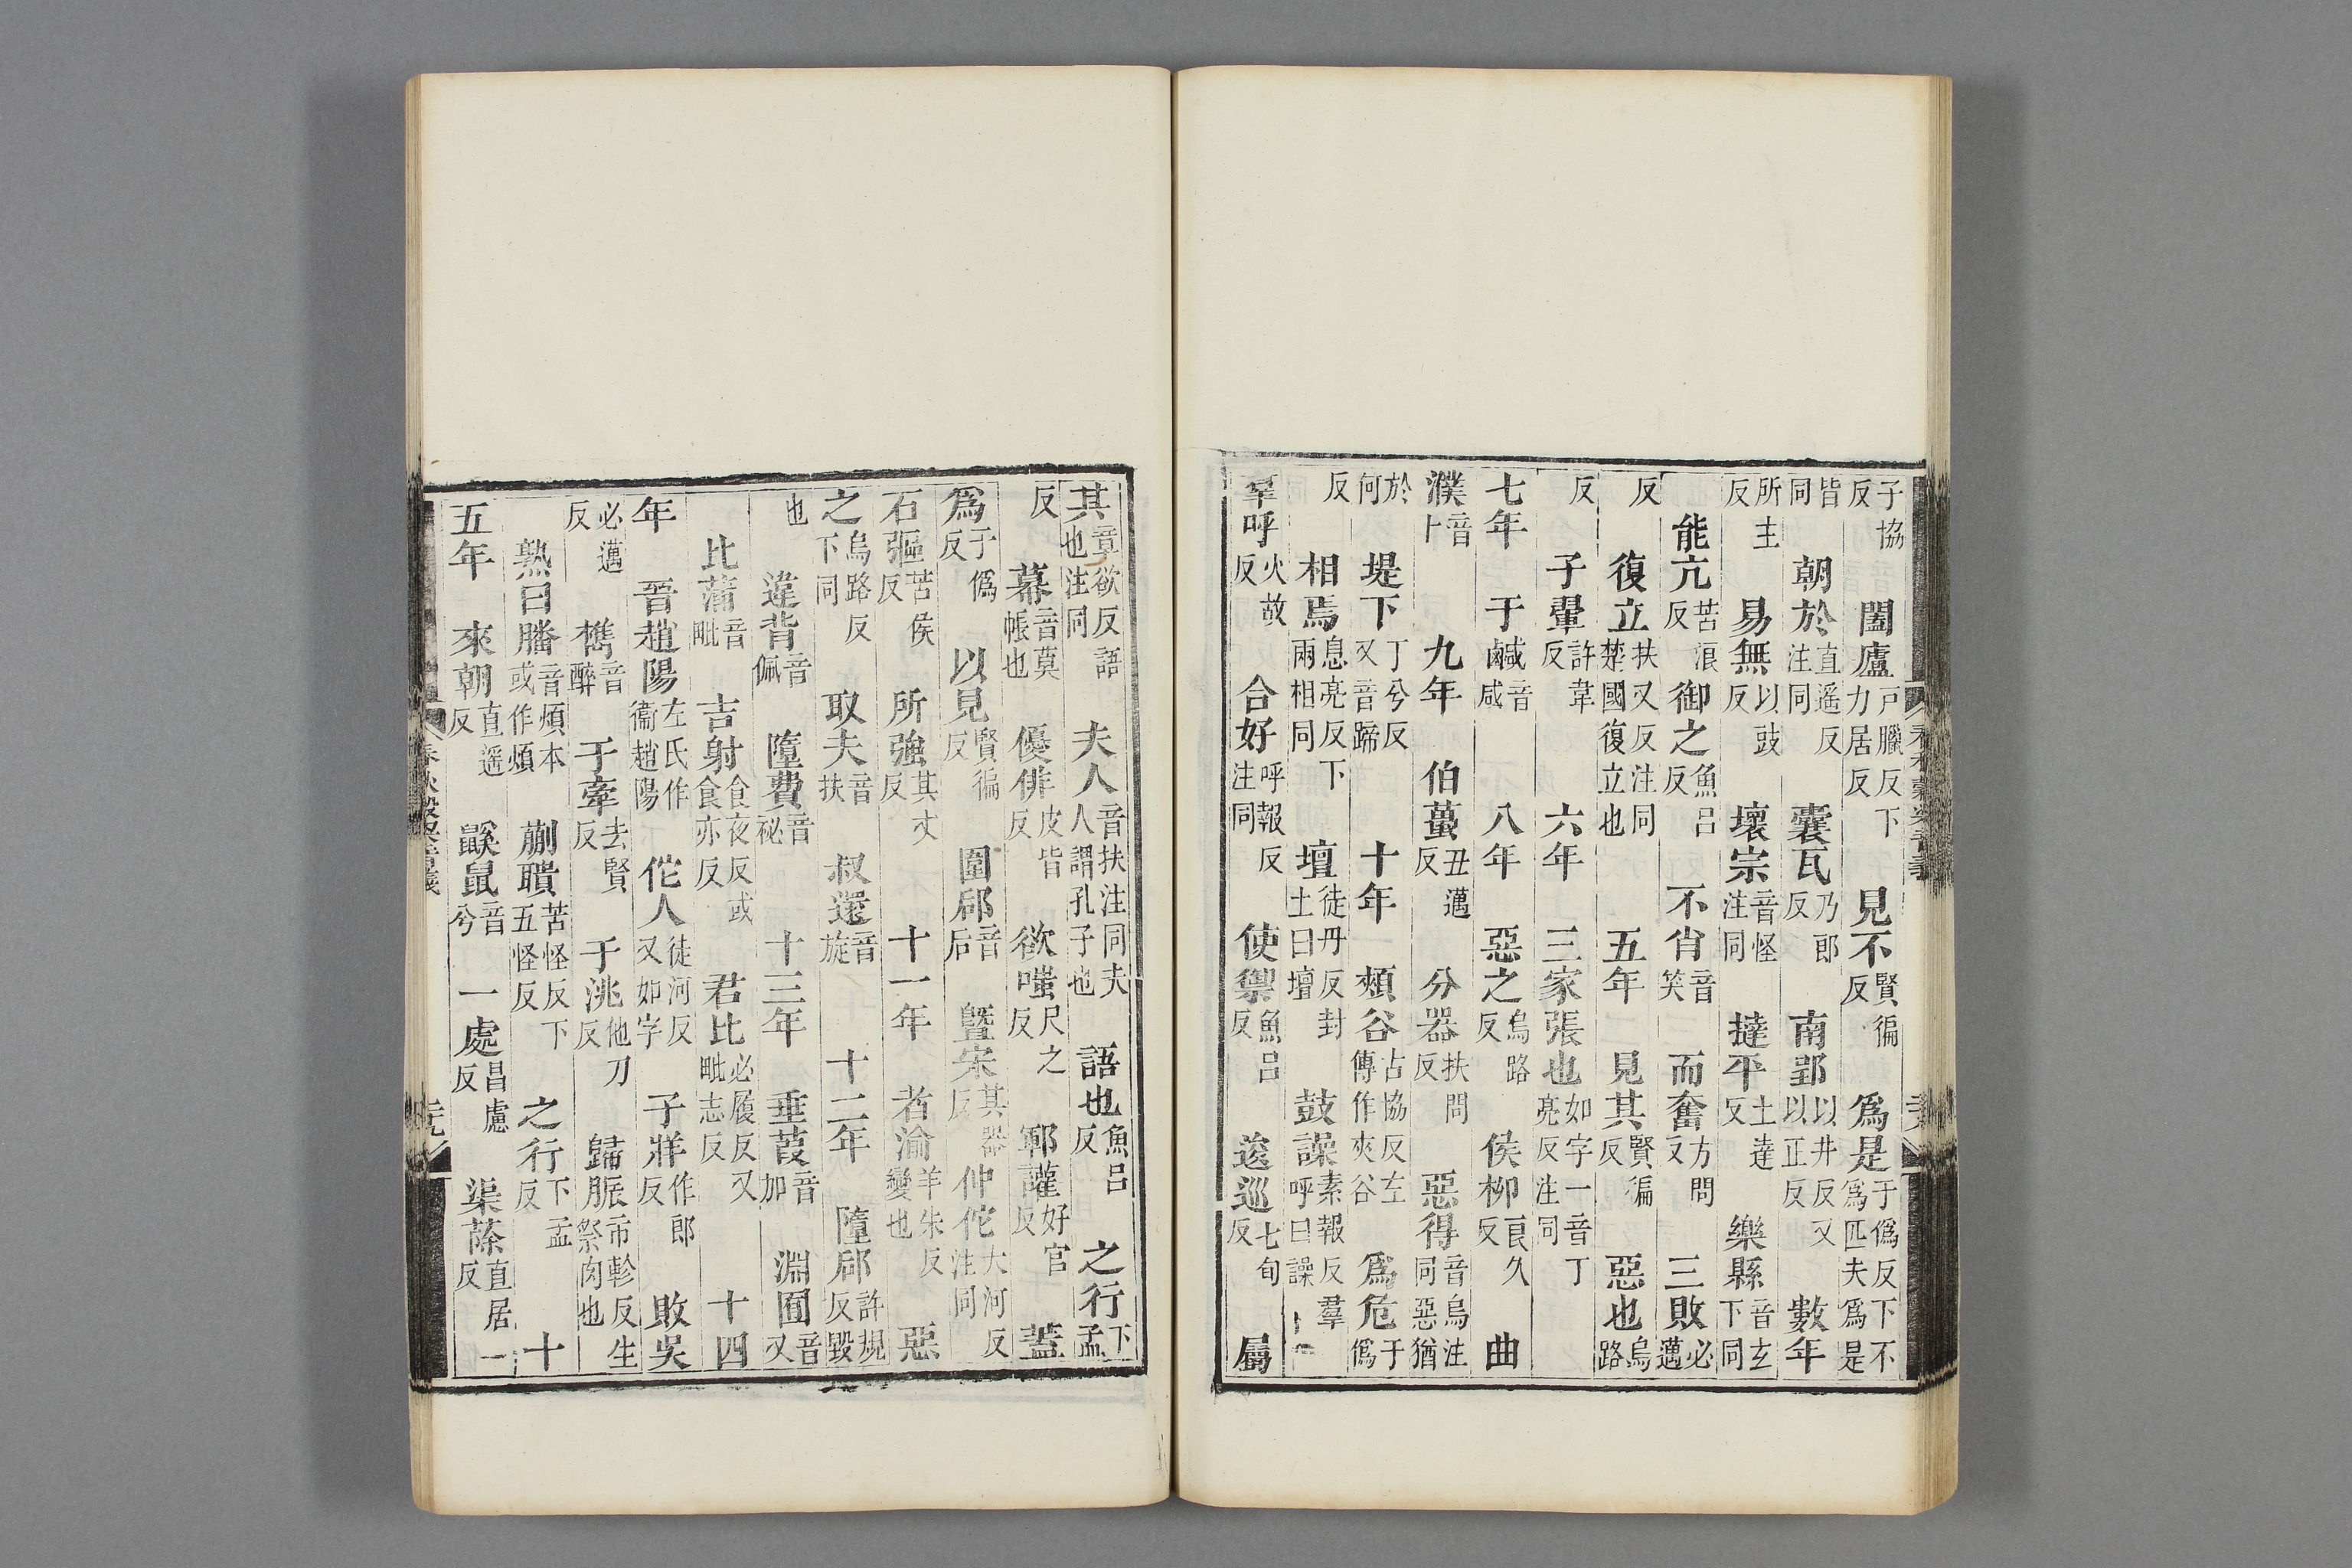 子協反 闔廬戶臘反下力居反 見不賢徧反 爲是于僞反下不爲匹夫爲是
皆同 朝於直遙反注同 囊瓦乃郎反 南郢以井反又以正反 數年
所主反 易無以豉反 壞宗音怪注同 撻平土達反 樂縣音玄下同
能亢苦浪反 御之魚呂反 不肖音笑 而奮方問反 三敗必邁
反 復立扶又反注同楚國復立也 五年 見其賢徧反 惡也烏路
反 子翬許韋反 六年 三家張也如字一音丁亮反注同
七年 于鹹音咸 八年 惡之烏路反 侯柳良久反 曲
濮音卜 九年 伯蠆丑邁反 分器扶問反 惡得音烏注同惡猶
於何 堤下丁兮反又音蹄 十年 頰谷古協反左傳作夾谷 爲危于僞
反 相焉息亮反下兩相同 壇徒丹反封土曰壇 鼓譟素報反羣呼曰譟
羣呼火故反 合好呼報反注同 使禦魚呂反 逡巡七旬反 屬
其章欲反語也注同 夫人音扶注同夫人謂孔子也 語也魚呂反 之行下孟
反 幕音莫帳也 優俳皮皆反 欲嗤尺之反 鄆讙好官反 蓋
爲于僞反 以見賢徧反 圍郈音后 曁宋其器反 仲佗大河反注同
石彄苦侯反 所強其丈反 十一年 者渝羊朱反變也 惡
之烏路反下同 取夫音扶 叔還音旋 十二年 墮郈許規反毀
也 違背音佩 墮費音祕 十三年 垂葭音加 淵囿音又
比蒲音毗 吉射食夜反或食亦反 君比必履反又毗志反 十四
年 晉趙陽左氏作衞趙陽 佗人徒河反又如字 子牂作郎反 敗吳
必邁反 檇音醉 于牽去賢反 于洮他刀反 歸脤市軫反生祭肉也
熟曰膰音煩本或作煩 蒯聵苦怪反下五怪反 之行下孟反 十
五年 來朝直遙反 鼷鼠音兮 一處昌慮反 渠蒢直居反 一
春秋穀梁音義